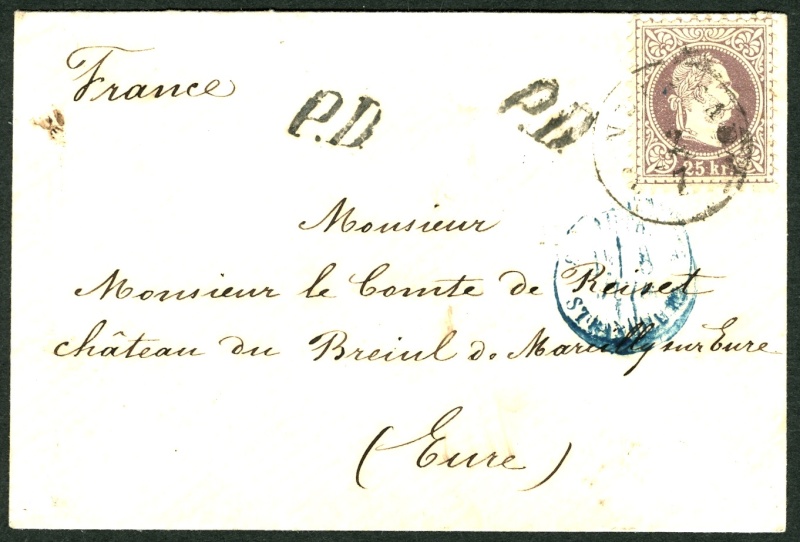 France
P.D.
P.D.
25 kr
Monsieur
Monsieur le Comte de Reiset
château du Breiul de Marcilly sur Eure
(Eure)